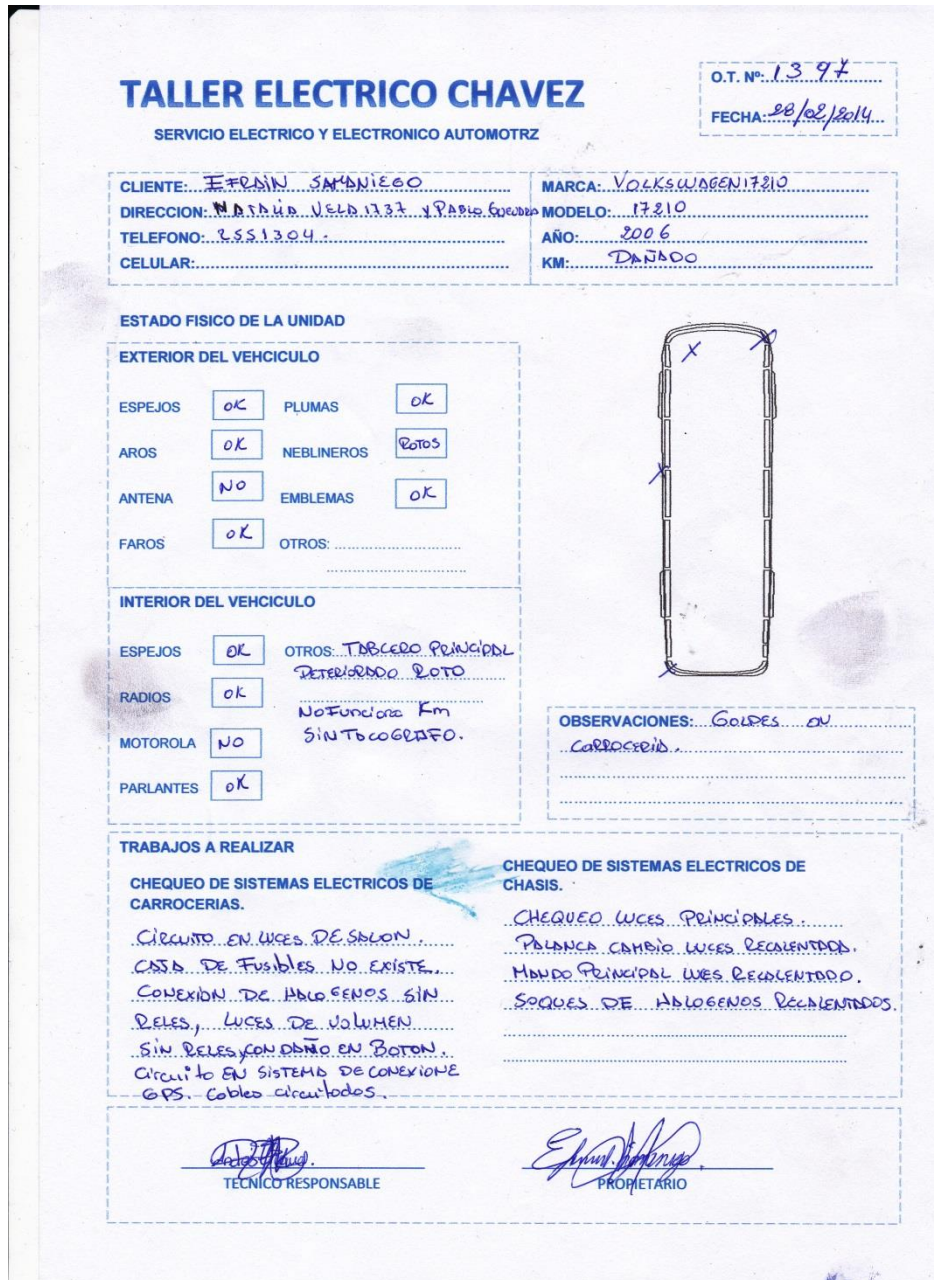 TALLER ELECTRICO CHAVEZ
SERVICIO ELECTRICO Y ELECTRONICO AUTOMOTRZ
O.T. Nº: 1397
FECHA: 28/02/2014
CLIENTE: EFRAIN SAMANIEGO
DIRECCION: NATALIA VELA 1737 Y PABLO
TELEFONO: 2551304.
CELULAR:
MARCA: VOLKSWAGEN 17210
MODELO: 17210
AÑO: 2006
KM: DAÑADO
ESTADO FISICO DE LA UNIDAD
EXTERIOR DEL VEHCICULO
ESPEJOS OK PLUMAS OK
AROS OK NEBLINEROS ROTOS
ANTENA NO EMBLEMAS OK
FAROS OK OTROS:
INTERIOR DEL VEHCICULO
ESPEJOS OK OTROS: TABLERO PRINCIPAL
DETERIORADO ROTO
RADIOS OK
No Funciona Km
MOTOROLA NO SIN TOCOGRAFO.
PARLANTES OK
OBSERVACIONES: GOLPES EN
CARROCERIA.
TRABAJOS A REALIZAR
CHEQUEO DE SISTEMAS ELECTRICOS DE
CARROCERIAS.
CIRCUITO EN LUCES DE SALON.
CAJA DE FUSIBLES NO EXISTE.
CONEXION DE HALOGENOS SIN
RELES, LUCES DE VOLUMEN
SIN RELES, CON DAÑO EN BOTON.
Circuito EN SISTEMA DE CONEXIONE
GPS. Cables circuitados.
CHEQUEO DE SISTEMAS ELECTRICOS DE
CHASIS.
CHEQUEO LUCES PRINCIPALES.
PALANCA CAMBIO LUCES RECALENTADA.
MANDO PRINCIPAL LUCES RECALENTADO.
SOQUES DE HALOGENOS RECALENTADOS.
TECNICO RESPONSABLE
PROPIETARIO